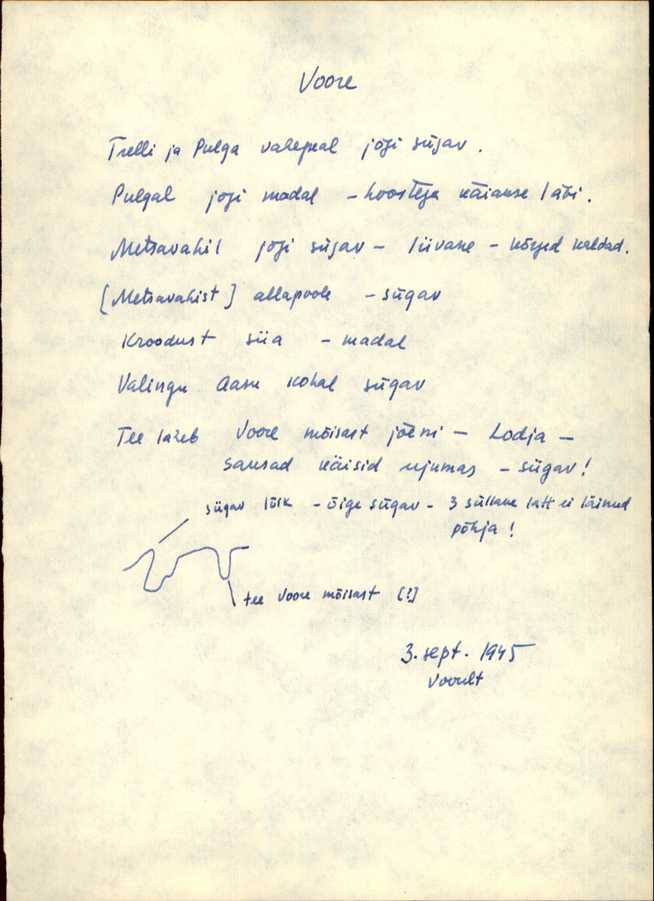 Voore
Trelli ja Pulga vahepeal jõgi sügav.
Pulgal jõgi madal – hoostega käiakse läbi.
Metsavahil jõgi sügav – liivane – kõrged kaldad.
[Metsavahist] allapoole – sügav
Kroodust siia – madal
Valingu Aasu kohal sügav
Tee läheb Voore mõisast jõeni – Lodja –
saksad käisid ujumas – sügav!
sügav lõik – õige sügav – 3 süllane latt ei läinud
põhja!
tee Voore mõisast [?]
3. sept. 1945
Voorelt